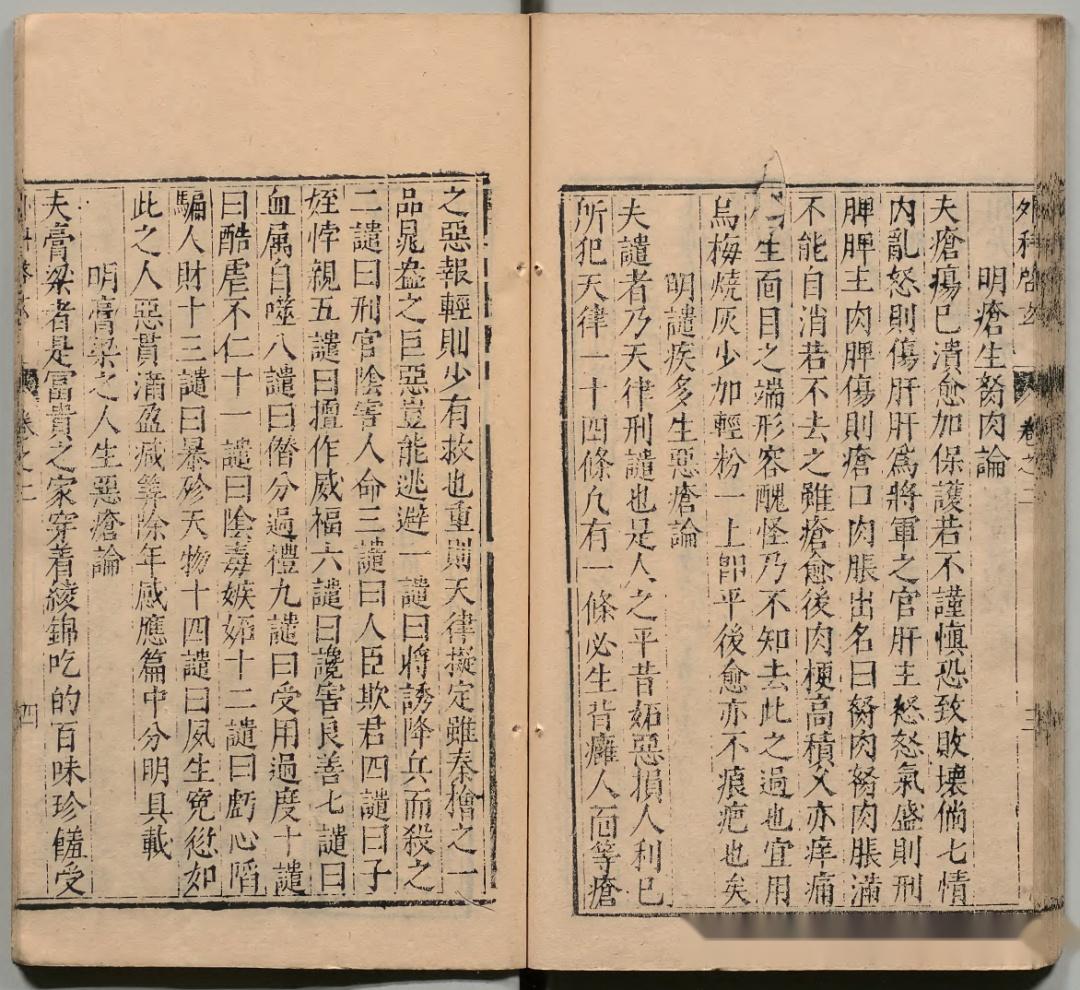 外科啓玄 卷之二 三
明瘡生努肉論
夫瘡瘍已潰愈加保護若不謹慎恐致敗壞倘七情
内亂怒則傷肝肝爲將軍之官肝主怒怒氣盛則刑
脾脾主肉脾傷則瘡口肉脹出名曰努肉努肉脹滿
不能自消若不去之雖瘡愈後肉梗高積久亦痒痛
生面目之端形容醜怪乃不知去此之過也宜用
烏梅燒灰少加輕粉一上卽平後愈亦不痕疤也矣
明譴疾多生惡瘡論
夫譴者乃天律刑譴也是人之平昔妬惡損人利已
所犯天律一十四條凡有一條必生背癰人面等瘡
之惡報輕則少有救也重則天律擬定雖秦檜之一
品晁盎之巨惡豈能逃避一譴曰將誘降兵而殺之
二譴曰刑官陰害人命三譴曰人臣欺君四譴曰子
姪悖親五譴曰擅作威福六譴曰讒害良善七譴曰
血属自噬八譴曰僭分過禮九譴曰受用過度十譴
曰酷虐不仁十一譴曰陰毒嫉妬十二譴曰虧心㗖
騙人財十三譴曰暴殄天物十四譴曰夙生寃愆如
此之人惡貫滿盈减筭除年感應篇中分明具載
明膏梁之人生惡瘡論
夫膏梁者是富貴之家穿着綾錦吃的百味珍饈受
卷之二 四